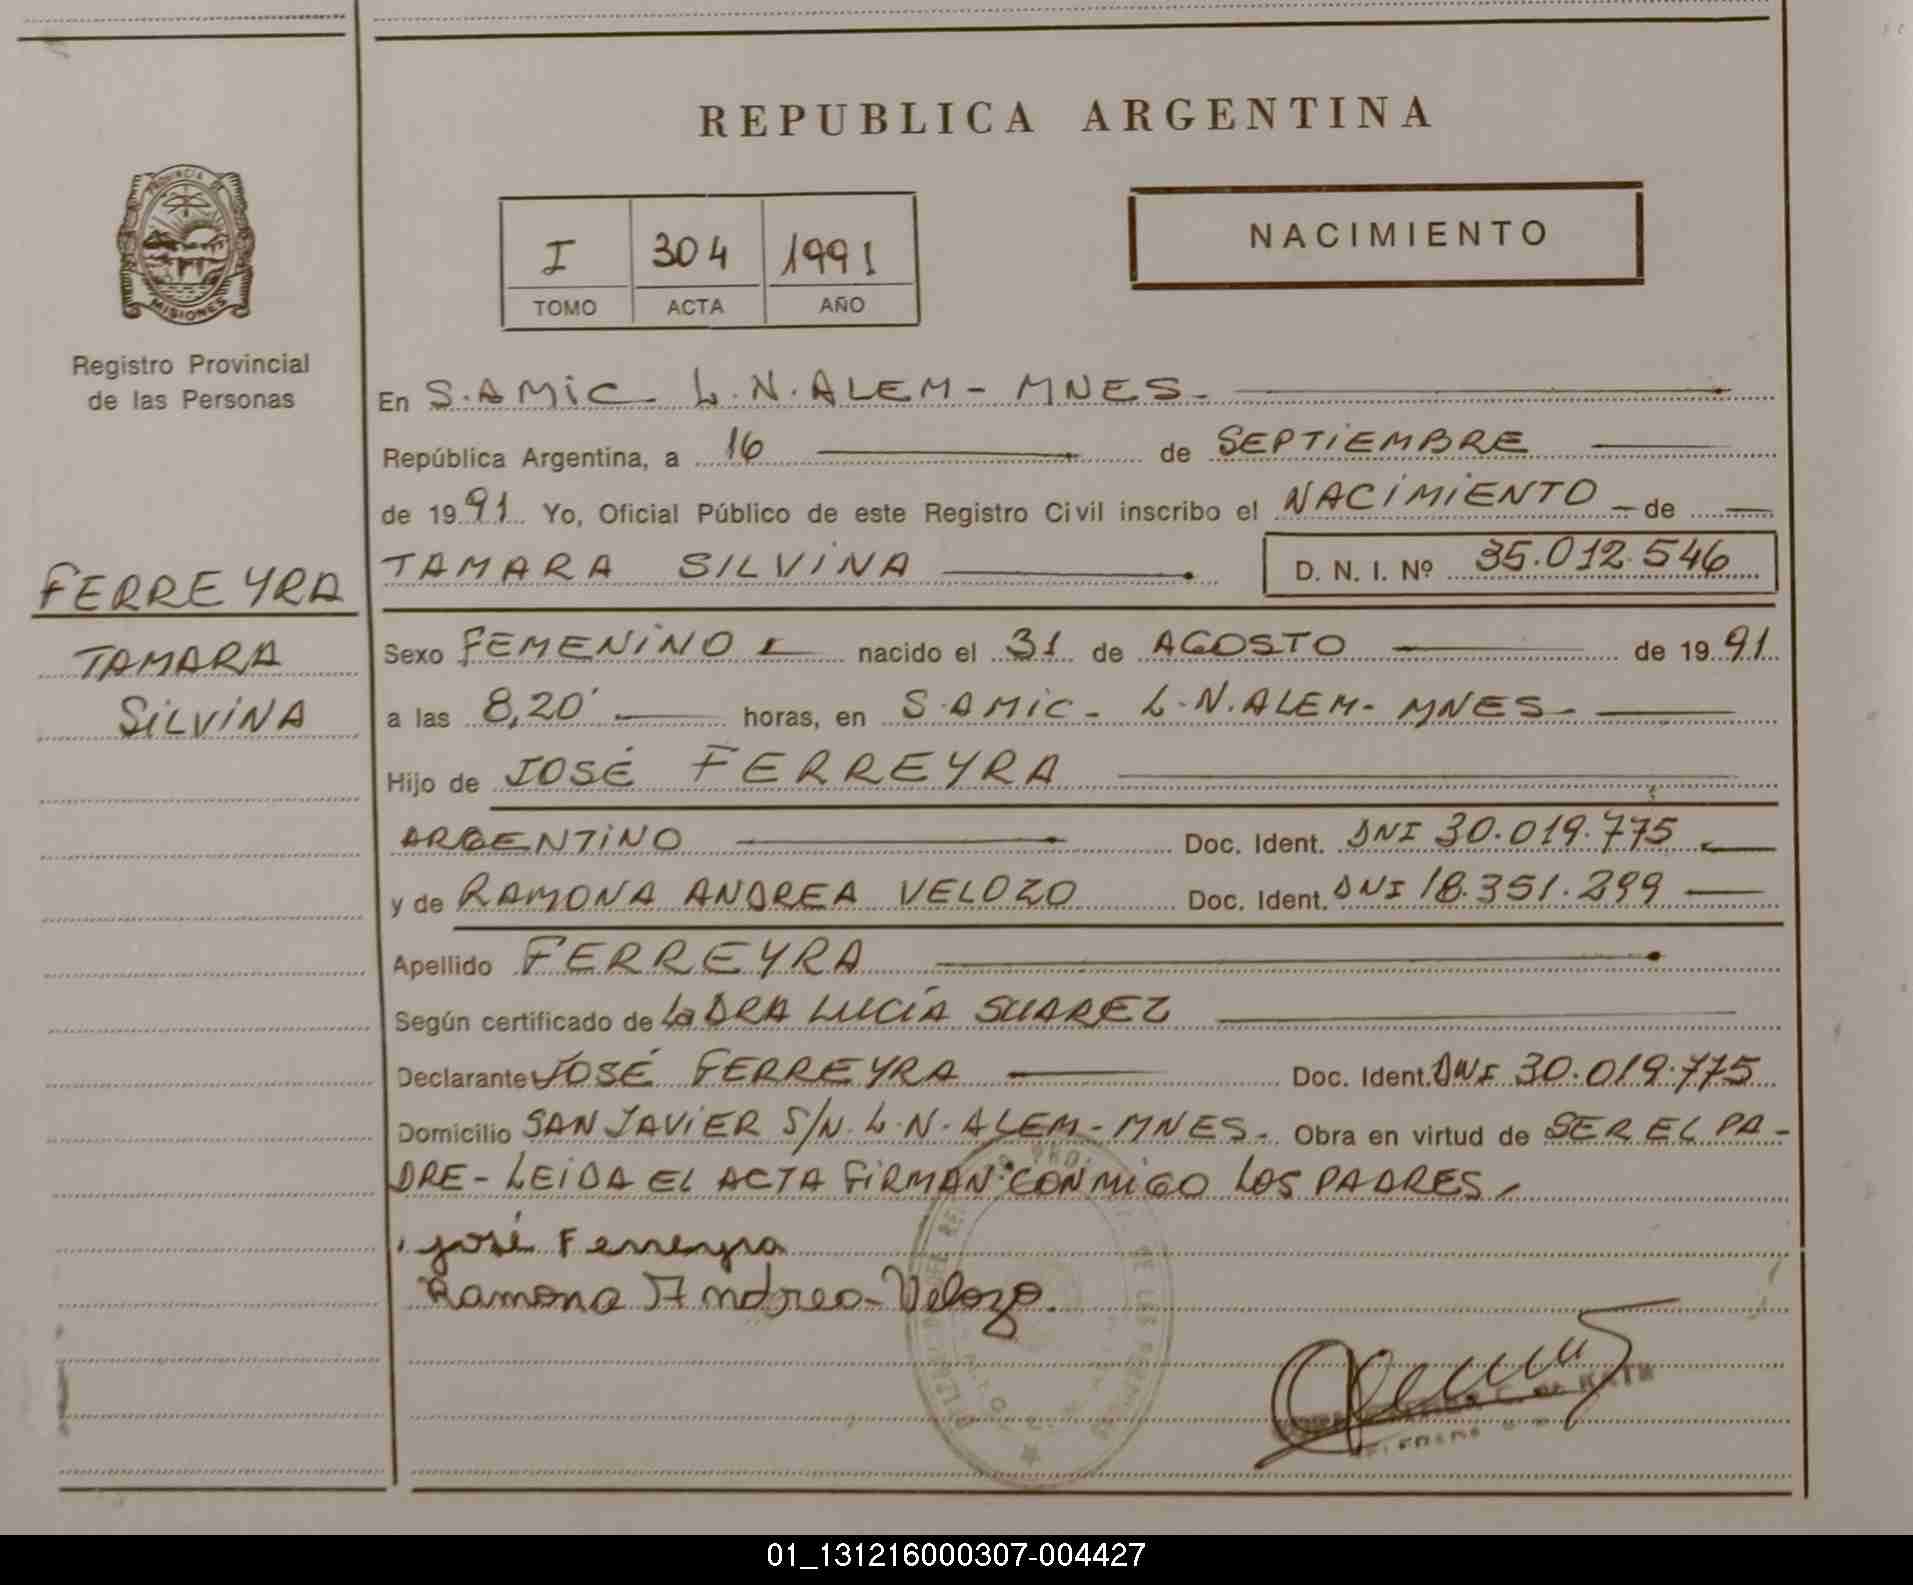 REPUBLICA ARGENTINA
PROVINCIA DE
MISIONES
Registro Provincial
de las Personas
I 304 1991
TOMO ACTA AÑO
NACIMIENTO
En S.AMIC- L.N.ALEM- MNES-
República Argentina, a 16 de SEPTIEMBRE
de 1991 Yo, Oficial Público de este Registro Civil inscribo el NACIMIENTO - de
TAMARA SILVINA D. N. I. Nº 35.012.546
FERREYRA
TAMARA
SILVINA
Sexo FEMENINO nacido el 31 de AGOSTO de 1991
a las 8,20' horas, en S.AMIC- L.N.ALEM- MNES-
Hijo de JOSÉ FERREYRA
ARGENTINO Doc. Ident. DNI 30.019.775
y de RAMONA ANDREA VELOZO Doc. Ident. DNI 18.351.299
Apellido FERREYRA
Según certificado de La DRA LUCÍA SUAREZ
Declarante JOSÉ FERREYRA Doc. Ident. DNI 30.019.775
Domicilio SAN JAVIER S/N. L.N. ALEM- MNES- Obra en virtud de SER EL PA-
DRE- LEIDA EL ACTA FIRMAN CONMIGO LOS PADRES
José Ferreyra
Ramona Andrea-Velozo.
01_131216000307-004427